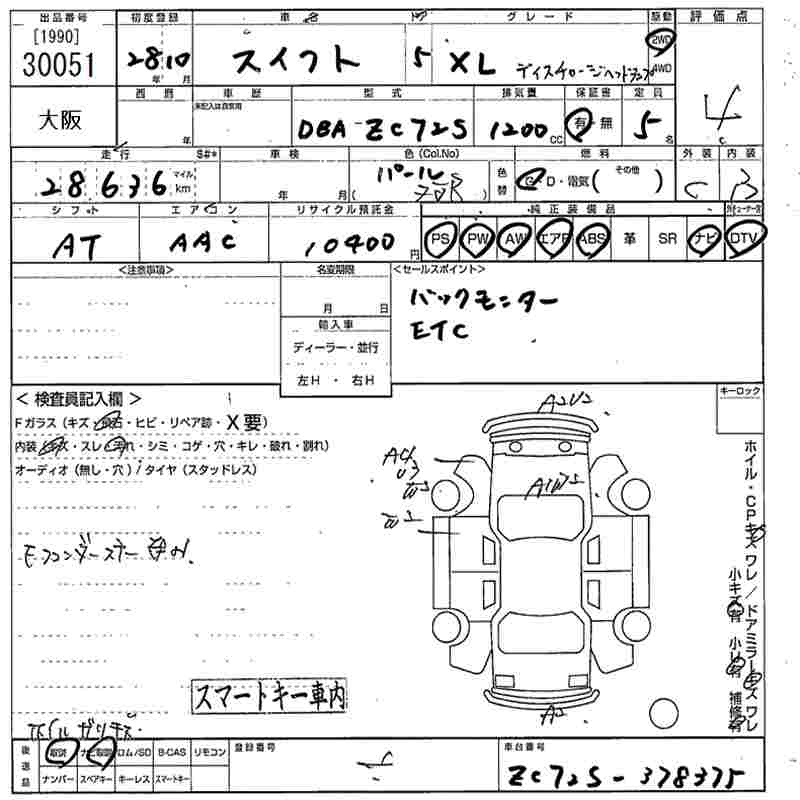 出品番号 初度登録 車名 ドア グレード 駆動 評価点
[1990] 30051 28年10月 スイフト 5 XL ディスチャージヘッドランプ 2WD 4WD 4
大阪 西暦 年 車歴 未記入は自家用 型式 DBA-ZC72S 排気量 1200cc 保証書 有・無 定員 5名
走行 S#* 車検 色(Col.No) 燃料 外装 内装
28,636 マイル km 年 月 パール 色替 G・D・電気( その他 ) C B
シフト エアコン リサイクル預託金 純正装備品
AT AAC 10400円 PS PW AW エアB ABS 革 SR ナビ DTV
<注意事項> 名変期限 <セールスポイント>
月 日 バックモニター
輸入車 ETC
ディーラー・並行
左H ・ 右H
< 検査員記入欄 > キーロック
Fガラス(キズ・飛石・ヒビ・リペア跡・X要) A2U2
内装(キズ・スレ・汚れ・シミ・コゲ・穴・キレ・破れ・割れ) A4
オーディオ(無し・穴)/タイヤ(スタッドレス) U3 A1W2
ホイル・CPキズワレ/ドアミラーキズワレ
小キズ有 小凹有 補修有
スマートキー車内
ホイルガリキズ A2
後返品 取説 ナビ取説 ロム/SD B-CAS リモコン 登録番号 車台番号
ナンバー スペアキー キーレス スマートキー ZC72S-378375